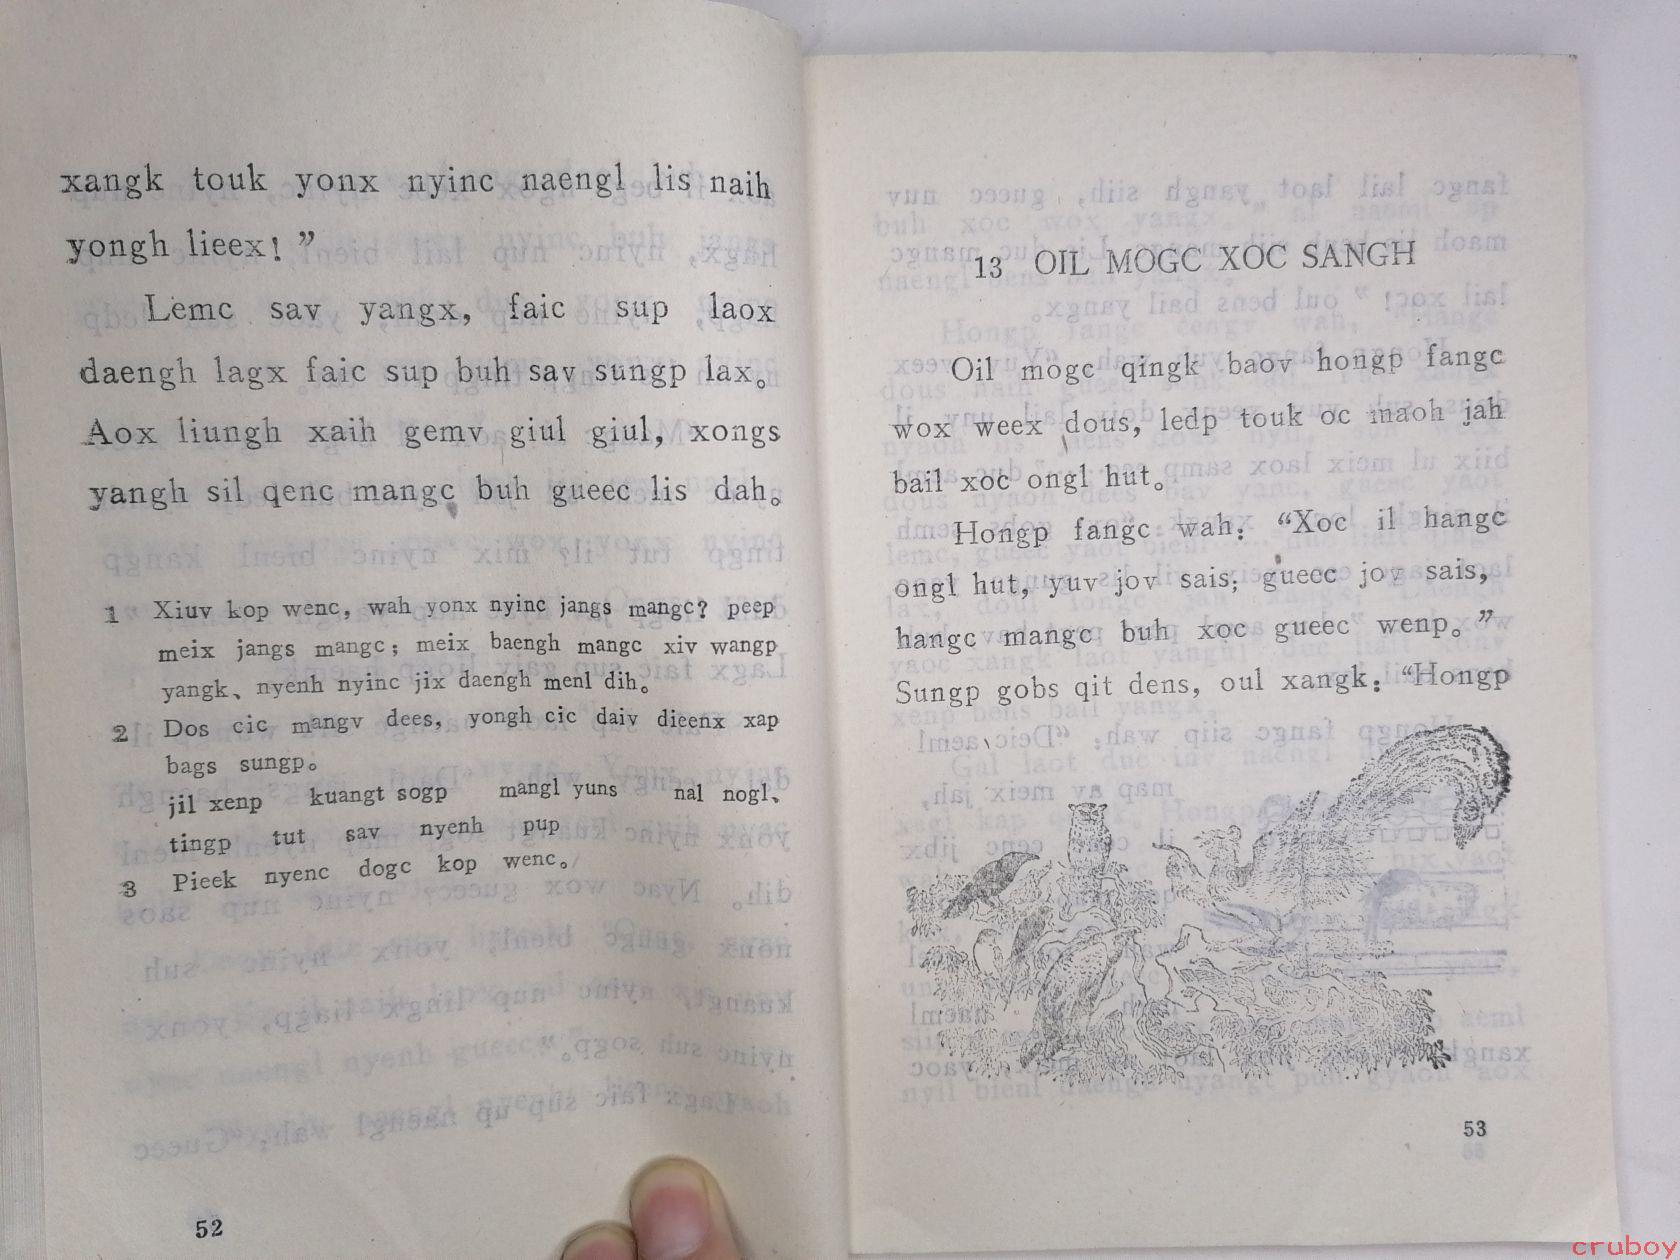 xangk touk yonx nyinc naengl lis naih
yongh lieex! ”
Lemc sav yangx, faic sup laox
daengh lagx faic sup buh sav sungp lax。
Aox liungh xaih gemv giul giul, xongs
yangh sil qenc mangc buh gueec lis dah。
1 Xiuv kop wenc, wah yonx nyinc jangs mangc? peep
meix jangs mangc; meix baengh mangc xiv wangp
yangk、nyenh nyinc jix daengh menl dih。
2 Dos cic mangv dees, yongh cic daiv dieenx xap
bags sungp。
jil xenp kuangt sogp mangl yuns nal nogl、
tingp tut sav nyenh pup
3 Pieek nyenc dogc kop wenc。
52
13 OIL MOGC XOC SANGH
Oil mogc qingk baov hongp fangc
wox weex dous, ledp touk oc maoh jah
bail xoc ongl hut。
Hongp fangc wah: “Xoc il hangc
ongl hut, yuv jov sais; gueec jov sais,
hangc mangc buh xoc gueec wenp。”
Sungp gobs qit dens, oul xangk: “Hongp
53
cruboy